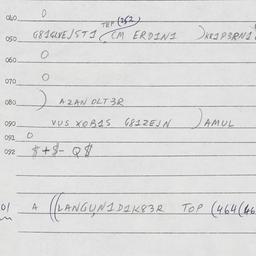 040 0
TEP (352
050 G81GLVE/ST1 (M ERD1N1 )KK1P3RN1
060 0
070 0
080 ) AZANDLT3R
090 VUS XOB1S G81ZEJN )AMUL
091 0
092 $+$- Q$
01 A ((LANGUN1D1K83R TOP (464(46